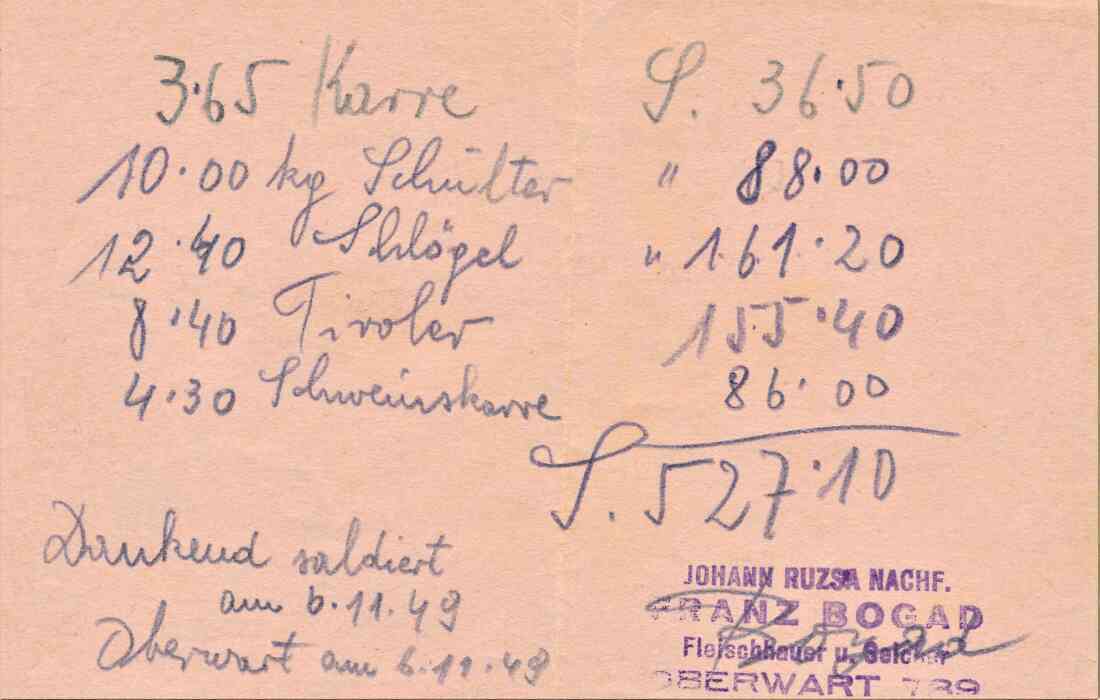 3·65 Karre S. 36·50
10·00 kg Schulter " 88·00
12·40 Schlögel " 161·20
8·40 Tiroler 155·40
4·30 Schweinskarre 86·00
S. 527·10
Dankend saldiert
am 6.11.49
Oberwart am 6.11.49
JOHANN RUZSA NACHF.
FRANZ BOGAD
Bogad
Fleischhauer u. Selcher
OBERWART 789